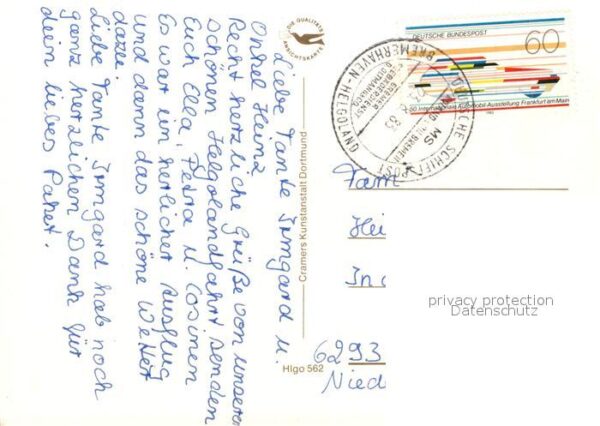 Liebe Tante Irmgard u.
Onkel Heinz
Recht herzliche Grüße von unserer
schönen Helgolandfahrt senden
Euch Ella, Petra u. Cosinen
Es war ein herrlicher Ausflug
und dann das schöne Wetter
dazu.
Liebe Tante Irmgard hab noch
ganz herzlichen Dank für
dein liebes Paket.
DIE QUALITÄTS
ANSICHTSKARTE
Cramers Kunstanstalt Dortmund
Hlgo 562
DEUTSCHE BUNDESPOST
60
50. Internationale Automobil-Ausstellung Frankfurt am Main
1983
DEUTSCHE SCHIFFSPOST
MS
BREMERHAVEN-HELGOLAND
Fam
Hei
In
6293
Nied
privacy protection
Datenschutz